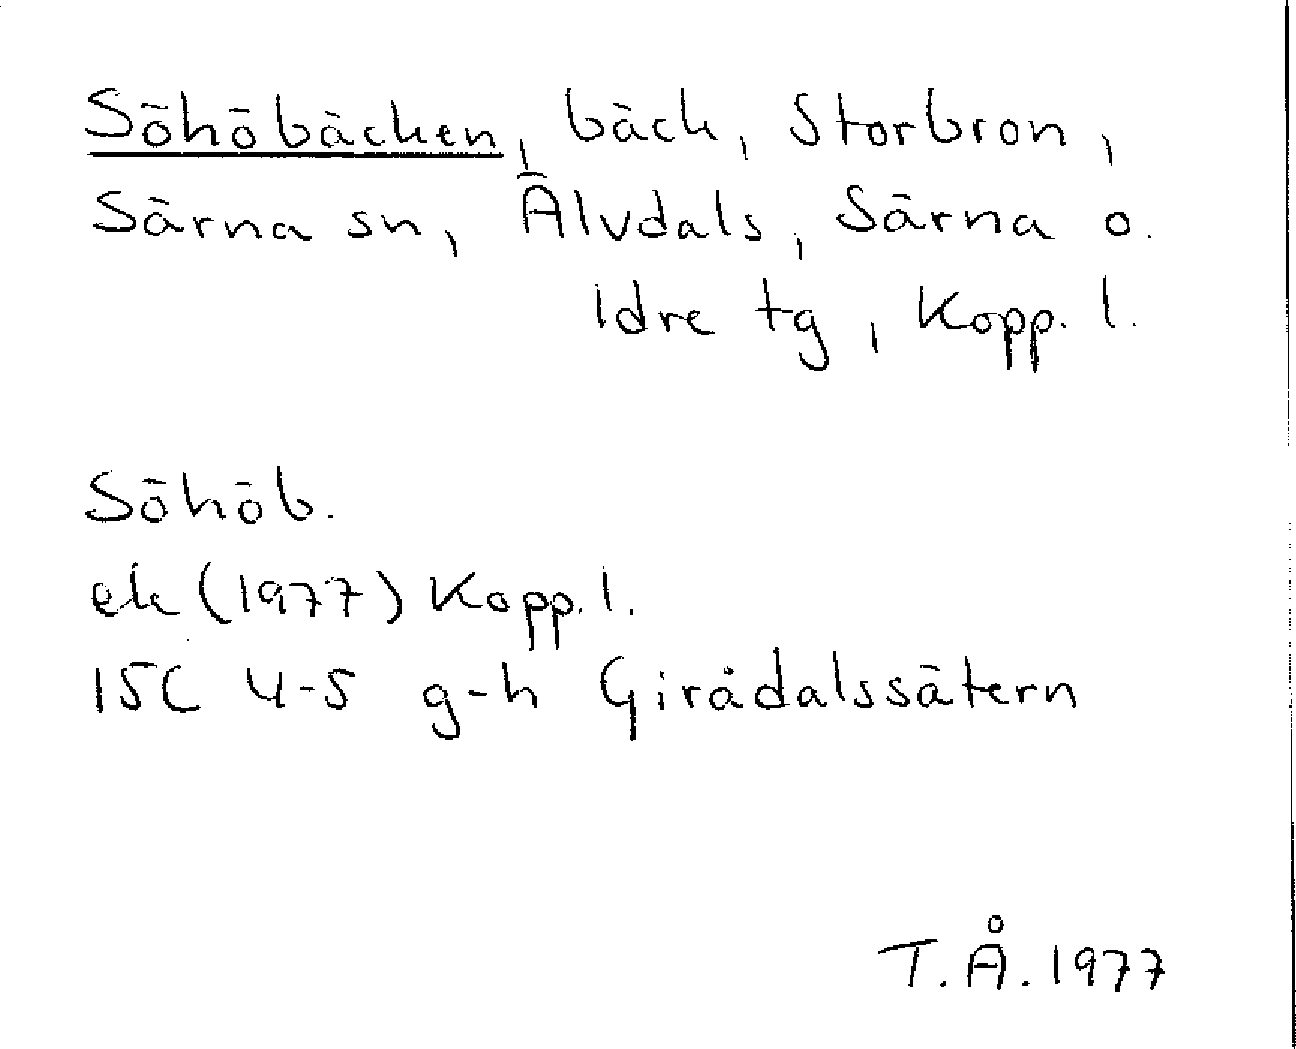 Söhöbäcken, bäck, Storbron,
Särna sn, Älvdals, Särna o.
Idre tg, Kopp. l.
Söhöb.
ek (1977) Kopp. l.
15C 4-5 g-h Girådalssätern
T.Å. 1977